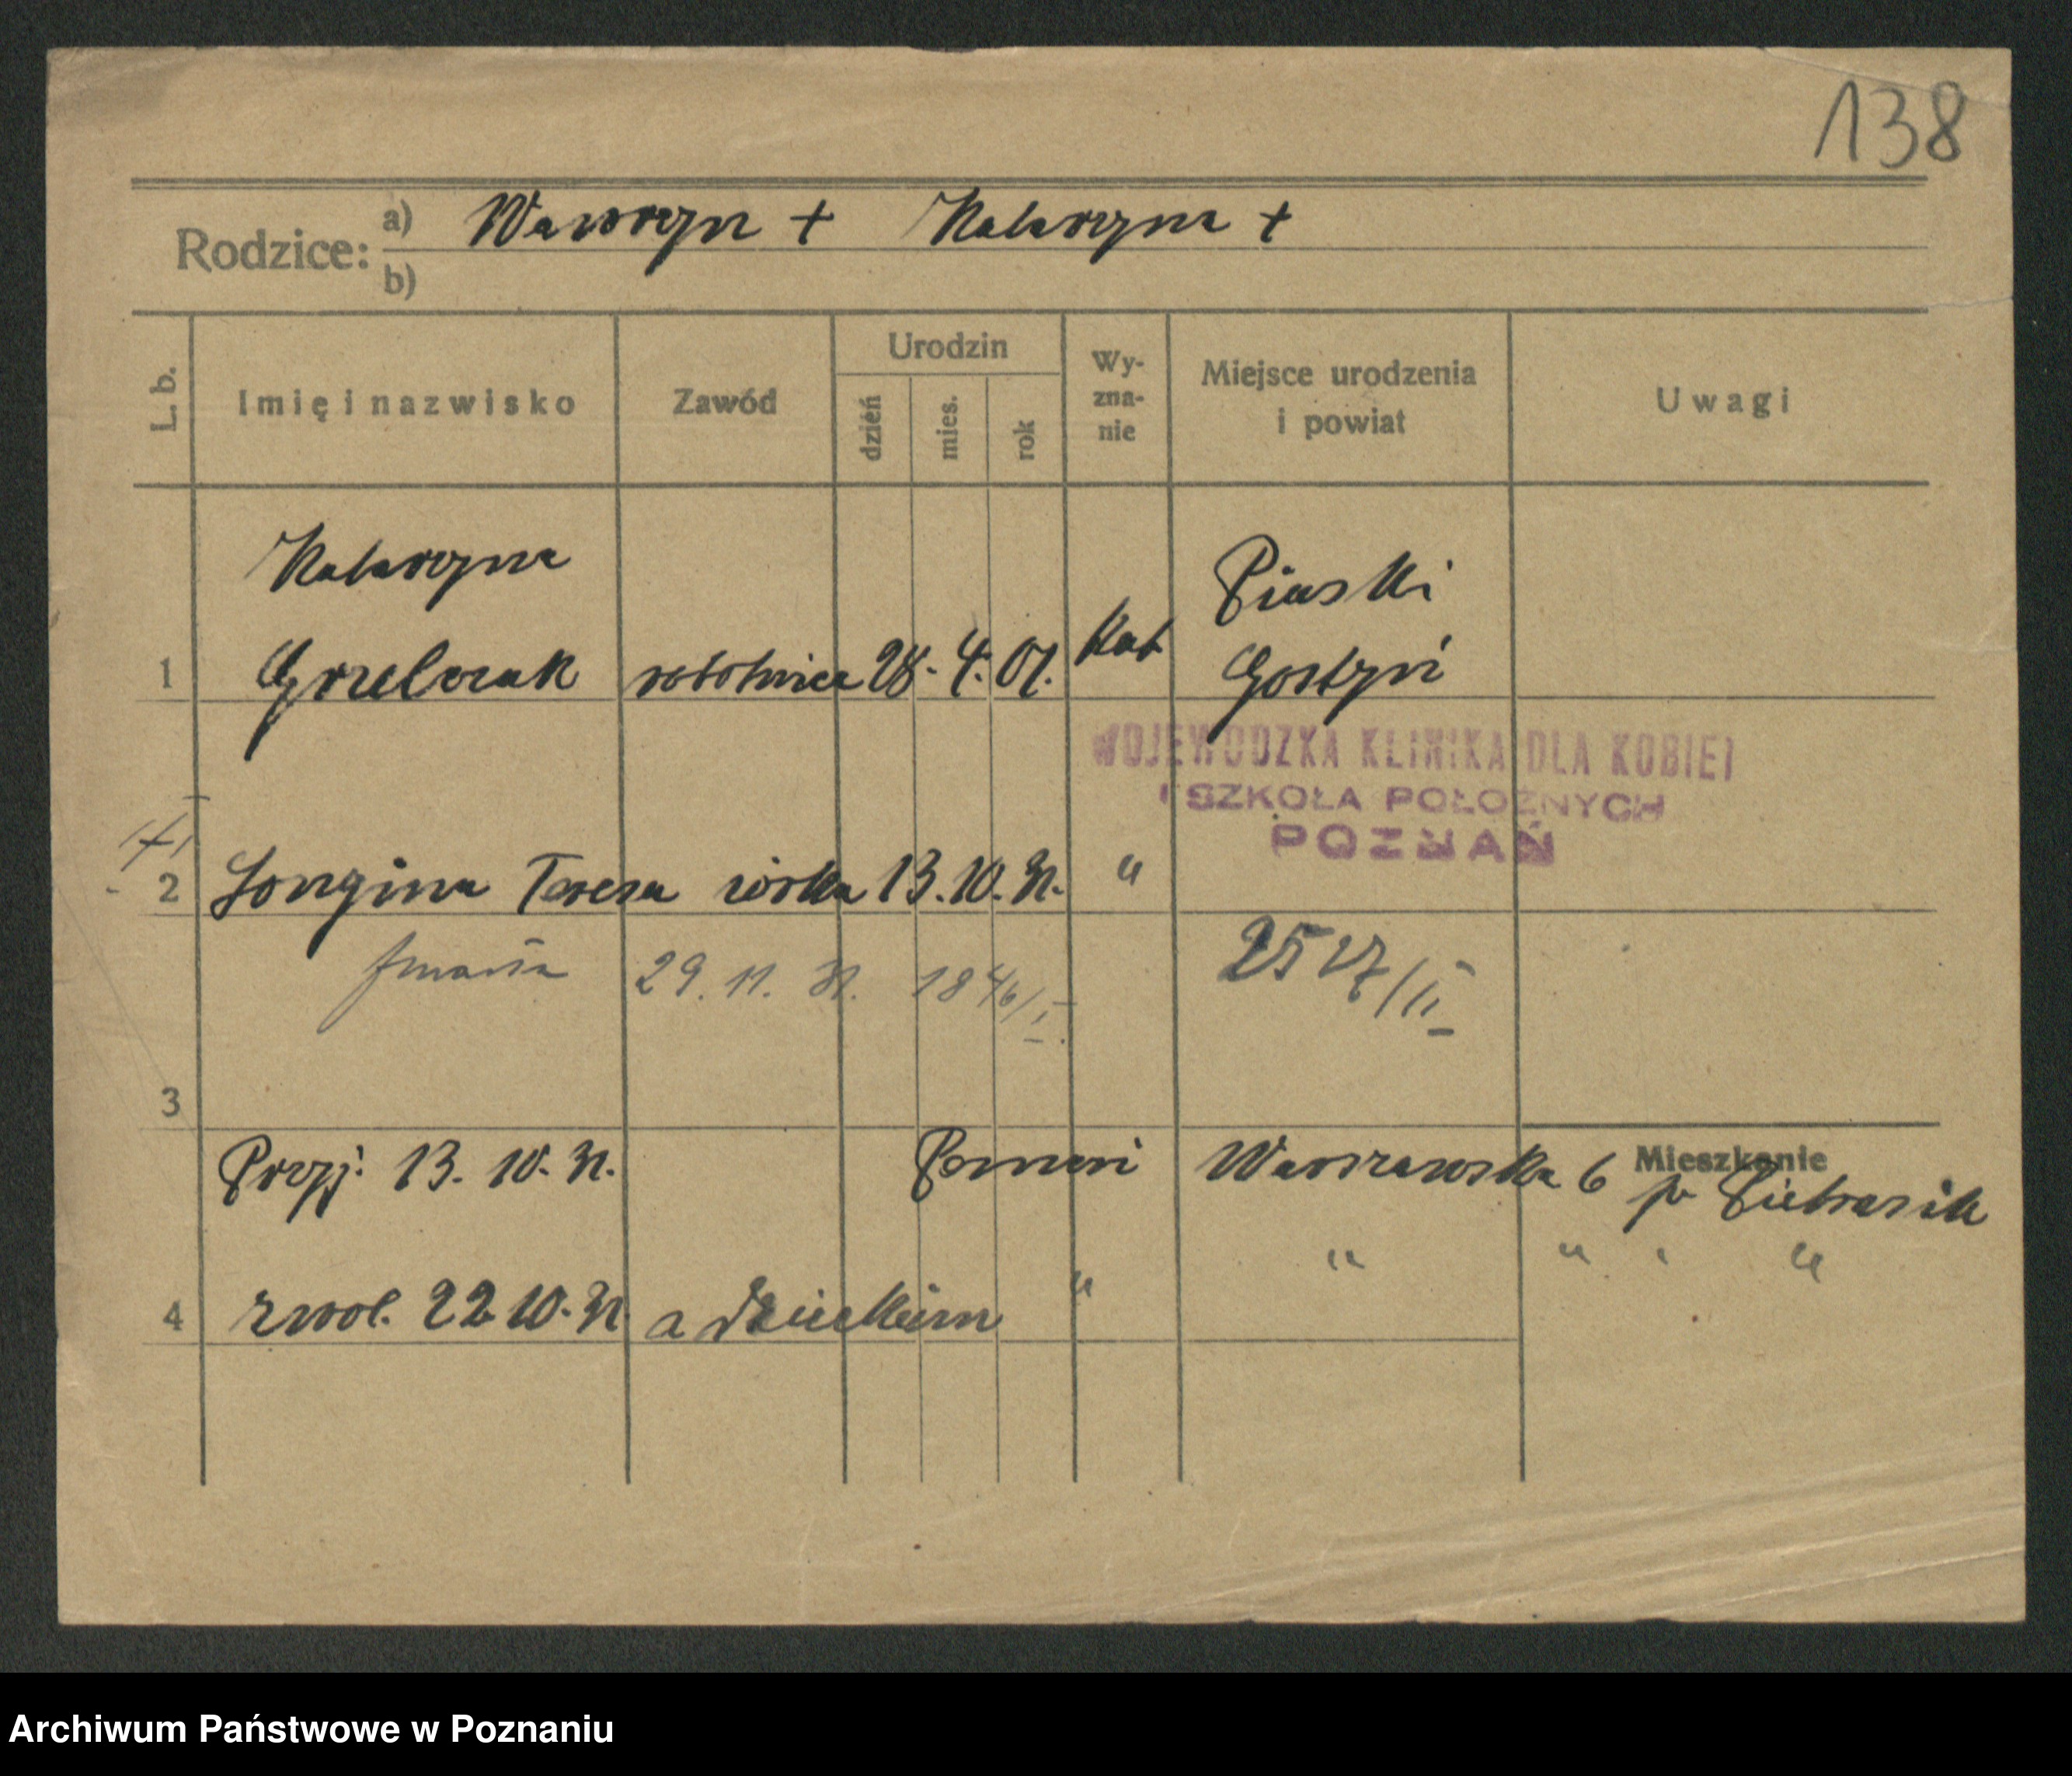 138
Rodzice: a) Wawrzyn + Katarzyna +
b)
L. b. Imię i nazwisko Zawód Urodzin dzień mies. rok Wy-zna-nie Miejsce urodzenia i powiat Uwagi
Katarzyna Piaski
1 Grzelczak robotnica 28. 4. 01. Kat Gostyń
WOJEWÓDZKA KLINIKA DLA KOBIET
I SZKOŁA POŁOŻNYCH
POZNAŃ
2 Longina Teresa córka 13. 10. 31. "
zmarła 29. 11. 31. 1846/I. 2527/II
3
Mieszkanie
Przyj. 13. 10. 31. Poznań Warszawska 6 p. Pietrasik
" " " "
4 zwol. 22 10. 31. z dzieckiem "
Archiwum Państwowe w Poznaniu